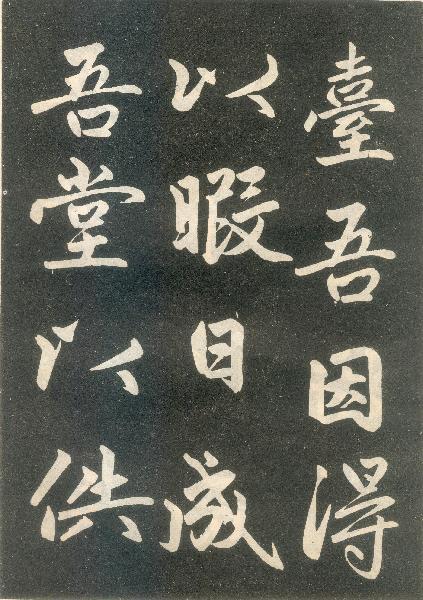 臺吾因得
以暇日成
吾堂以供